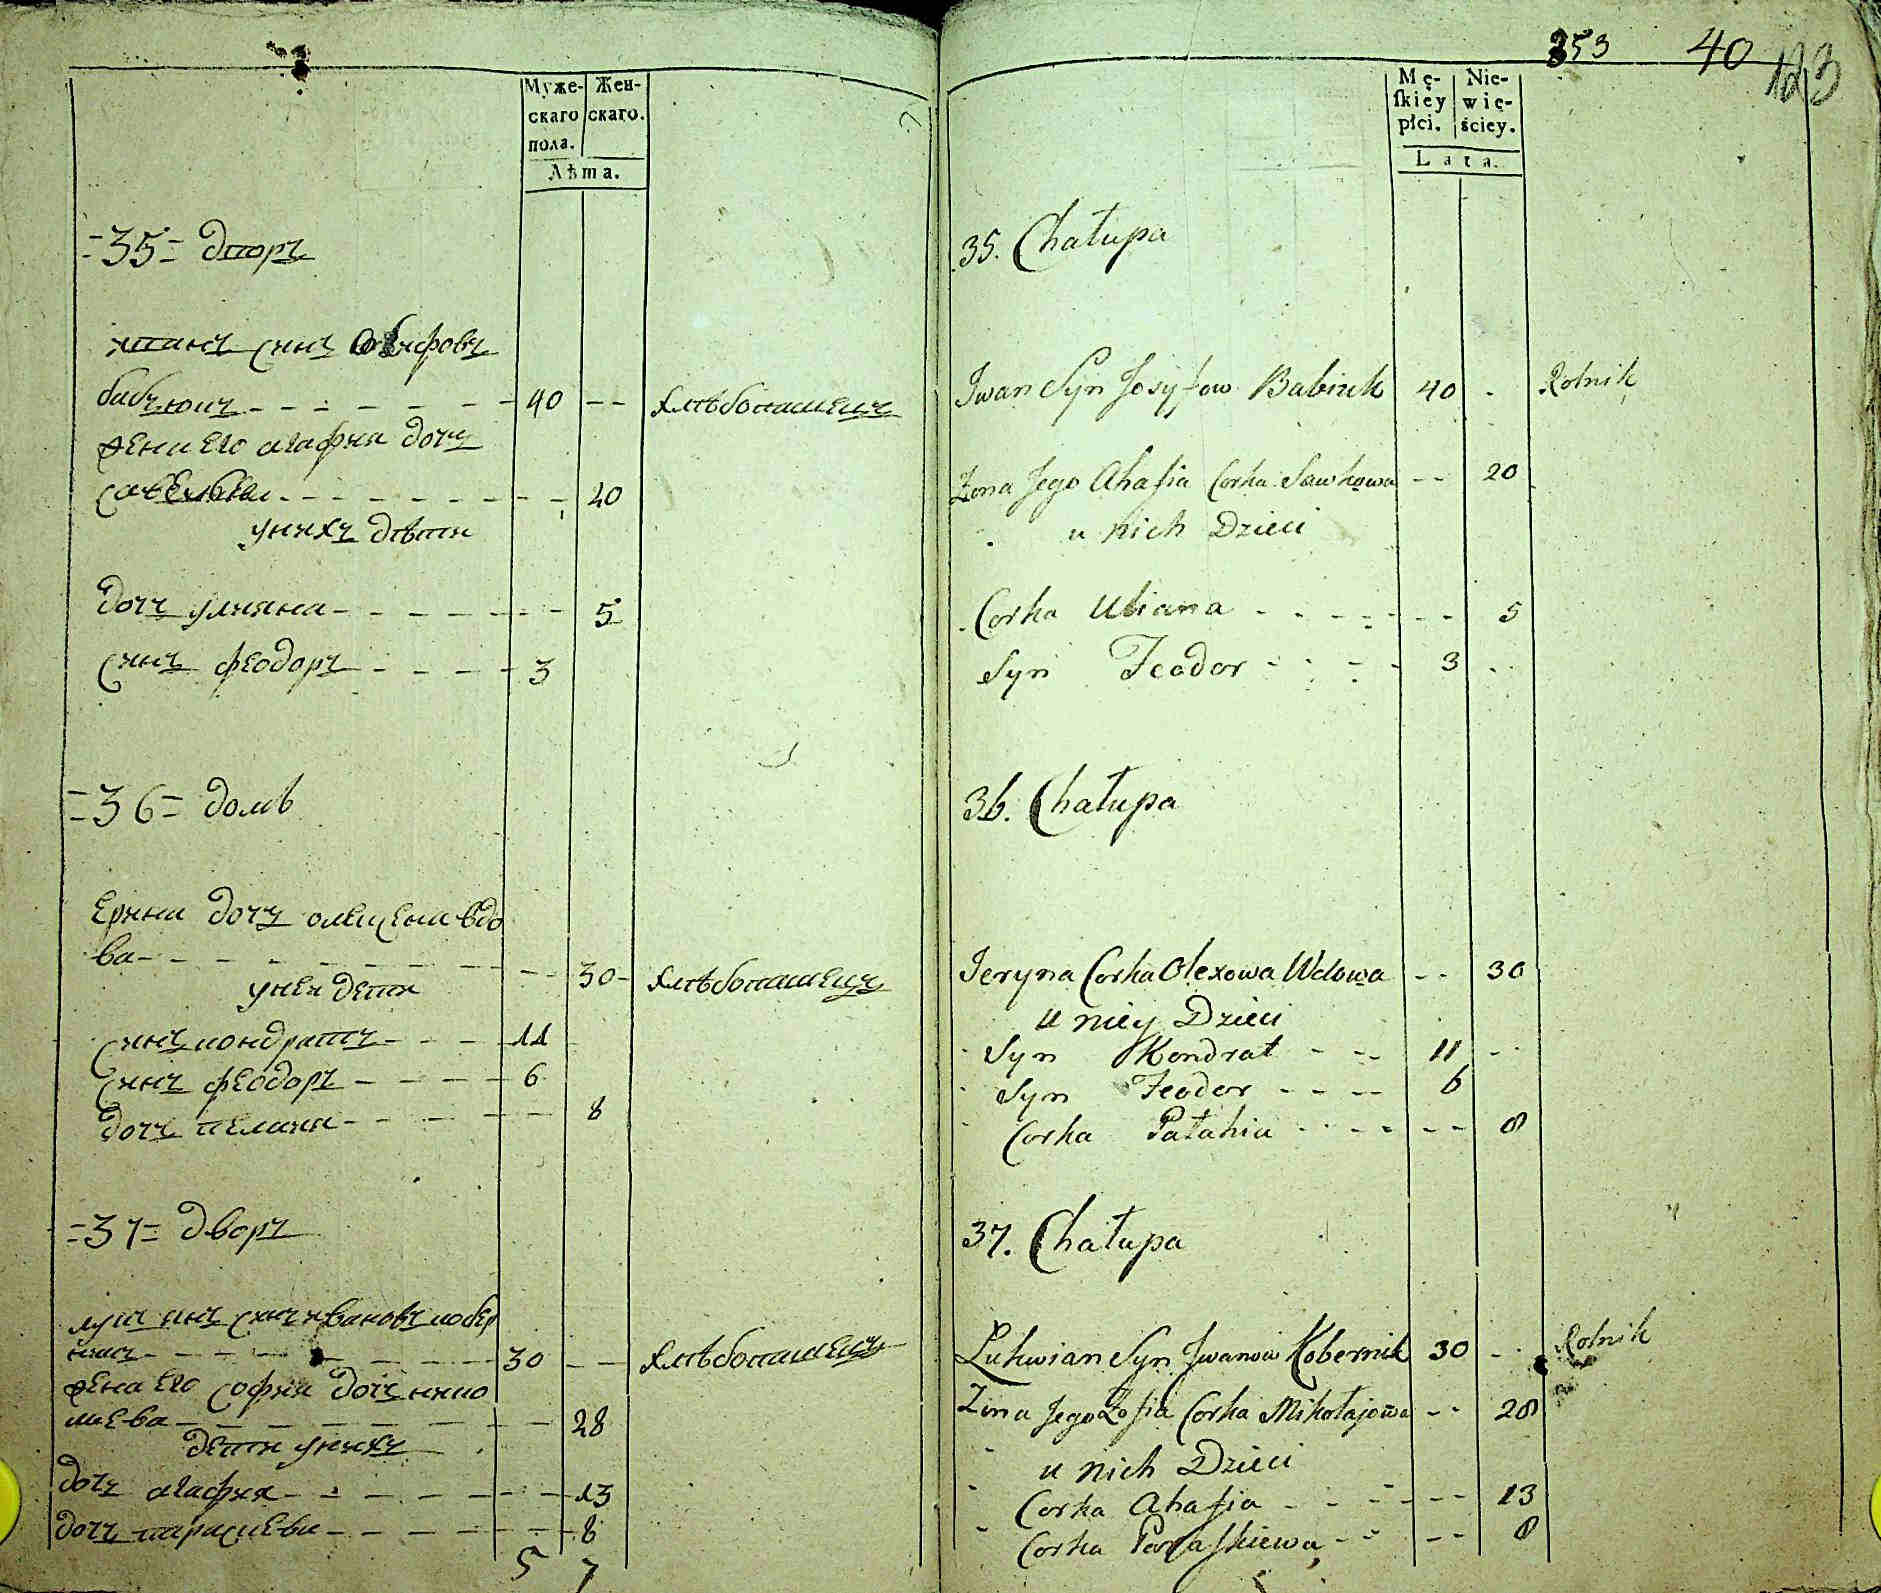 Муже-
скаго
пола.
Жен-
скаго.
Лѣта.
=35= дворъ
иванъ синъ
бабъюкъ 40 хлѣбопашецъ
жена его агафия дочъ
20
унихъ дѣти
дочъ улияна 5
синъ феодоръ 3
=36= домъ
ерина дочъ олексена вдо
ва 30 хлѣбопашецъ
унеи дети
синъ кондратъ 11
синъ феодоръ 6
дочъ пелагия 8
=37= дворъ
лукиянъ синъ ивановъ кобер
никъ 30 хлѣбопашецъ
жена его софия дочъ нико
лаева 28
дети унихъ
дочъ агафия 13
дочъ параскева 8
5 7
353 40 123
Mę-
ſkiéy
płci.
Nie-
wię-
ściey.
Lata.
35. Chałupa
Iwan Syn Josyfow Babiuk 40 Rolnik
Zona Jego Ahafia Corka Sawkowa 20
u nich Dzieci
Corka Uliana 5
Syn Feodor 3
36. Chałupa
Jeryna Corka Olexowa Wdowa 30
u niey Dzieci
Syn Kondrat 11
Syn Feodor 6
Corka Pałahia 8
37. Chałupa
Łukwian Syn Jwanow Kobernik 30 Rolnik
Zona Jego Zofia Corka Mikołajowa 28
u nich Dzieci
Corka Ahafia 13
Corka Paraſkiewa 8